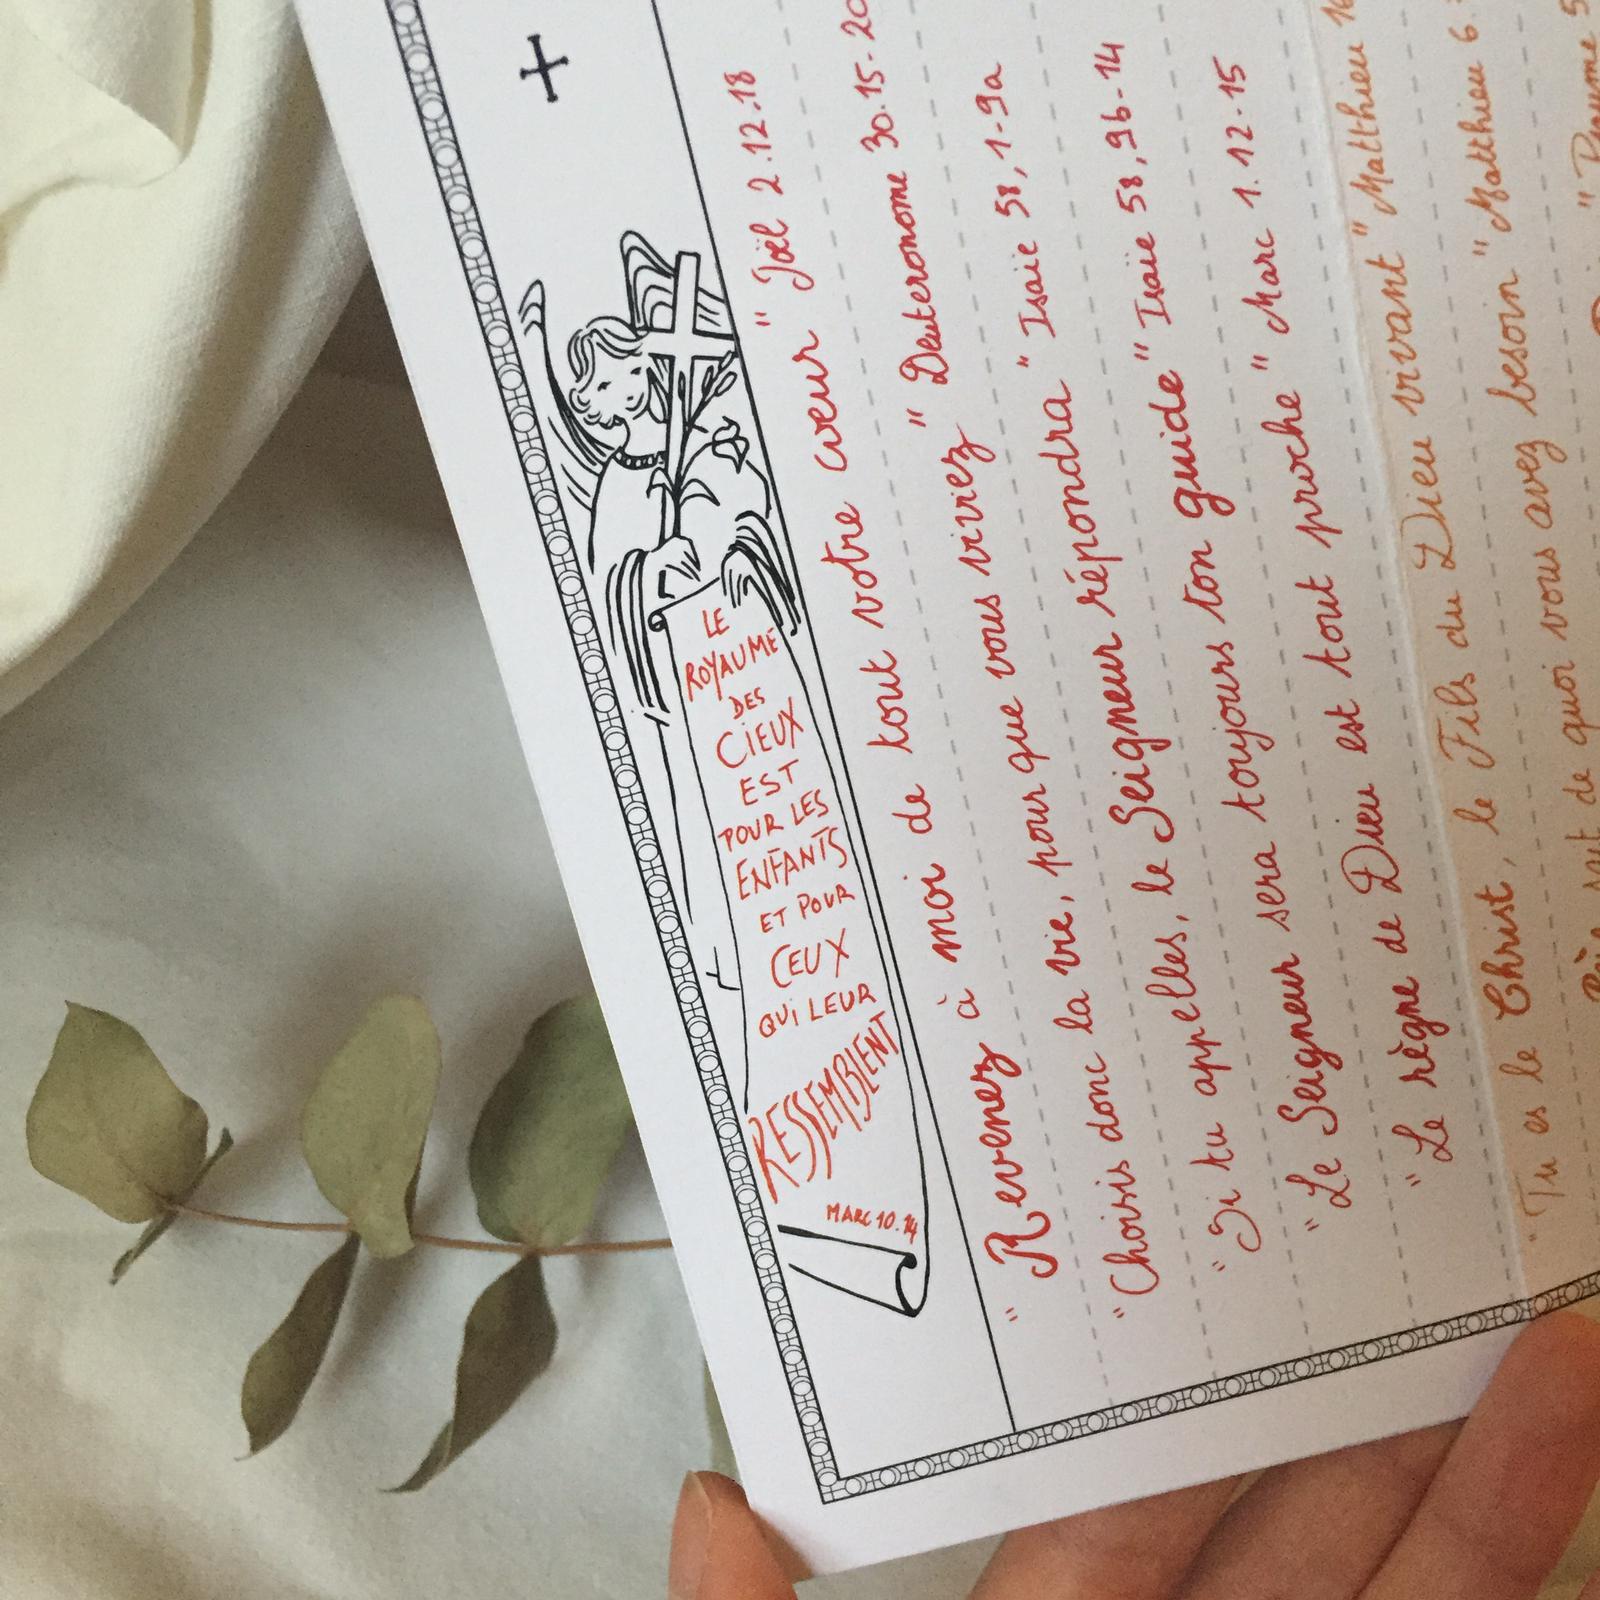 LE
ROYAUME
DES
CIEUX
EST
POUR LES
ENFANTS
ET POUR
CEUX
QUI LEUR
RESSEMBLENT
MARC 10.14
"Revenez à moi de tout votre cœur" Joël 2.12-18
"Choisis donc la vie, pour que vous viviez" Deuteronome 30.15-20
"Si tu appelles, le Seigneur répondra" Isaïe 58, 1-9a
"Le Seigneur sera toujours ton guide" Isaïe 58, 9b-14
"Le règne de Dieu est tout proche" Marc 1. 12-15
"Tu es le Christ, le Fils du Dieu vivant" Matthieu 16
sait de quoi vous avez besoin" Matthieu 6.